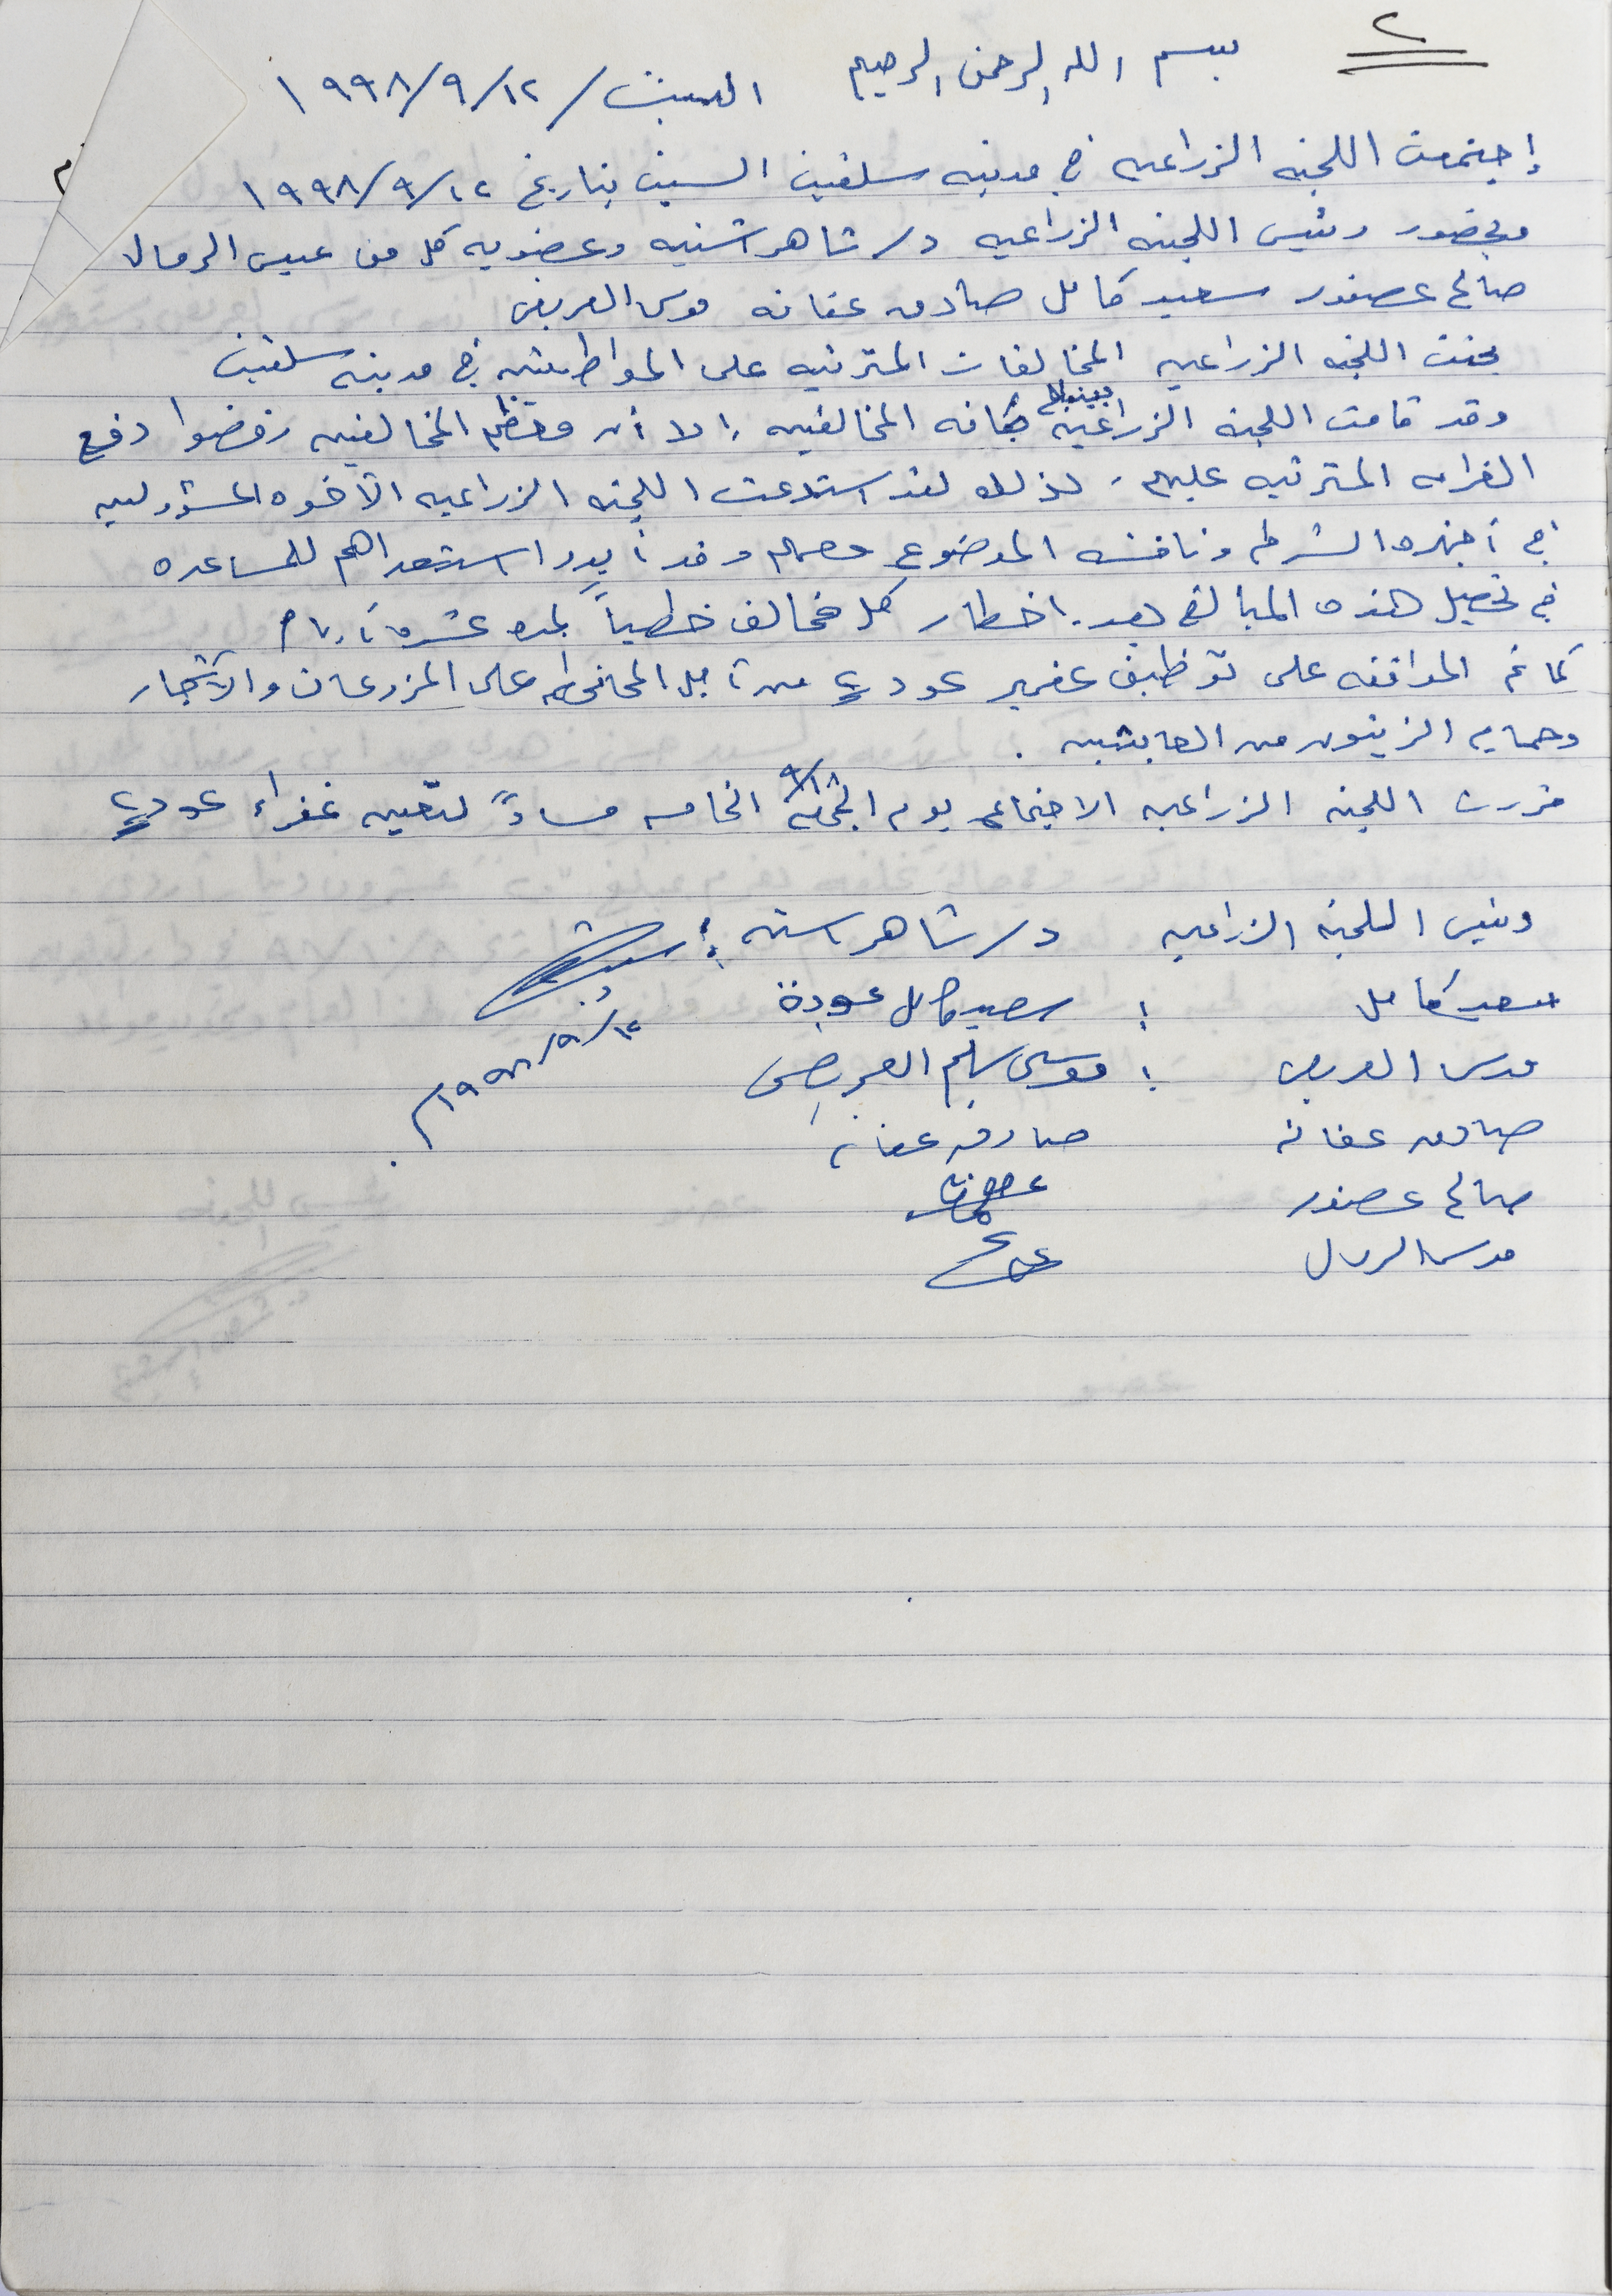 ٢
بسم الله الرحمن الرحيم السبت / ١٢/٩/١٩٩٨
إجتمعت اللجنه الزراعيه في مدينه سلفيت السبت بتاريخ ١٢/٩/١٩٩٨ م
وبحضور رئيس اللجنه الزراعيه د/ شاهر اشتيه وعضويه كل من عيسى الرمال
صالح عصفور سعيد كامل صادق عفانه موسى العريض
بحثت اللجنه الزراعيه المخالفات المترتبه على المواطنين في مدينه سلفيت
وقد قامت اللجنه الزراعيه بتبليغ كافه المخالفين إلا أن معظم المخالفين رفضوا دفع
الغرامه المترتبه عليهم . لذلك لقد استدعت اللجنه الزراعيه الأخوه المسؤولين
في أجهزه الشرطه وناقشه الموضوع معهم وقد أبدوا استعدادهم للمساعده
في تحصيل هذه المبالغ بعد إخطار كل مخالف خطياً لمده عشره أيام
كما تم الموافقه على توظيف غفير عدد ٤ من أجل المحافظه على المزروعات والأشجار
وحمايه الزيتون من العابثين .
قررت اللجنه الزراعيه الاجتماع يوم الجمعه ١٨/٩ الخامسه مساءً لتعيين غفراء عدد ٤
رئيس اللجنه الزراعيه د/ شاهر اشتيه :
سعيد كامل : سعيد كامل عودة
١٢/٩/١٩٩٨م
موسى العريض : موسى سليم العريض
صادق عفانه صادق عفانه
صالح عصفور
الرمال